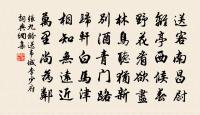 送客南昌尉
離亭西候春
野花看欲盡
林鳥聽猶新
別酒青門路
歸軒白馬津
相知無遠近
萬里尚為鄰
張九齡送韋城李少府
詞典網集